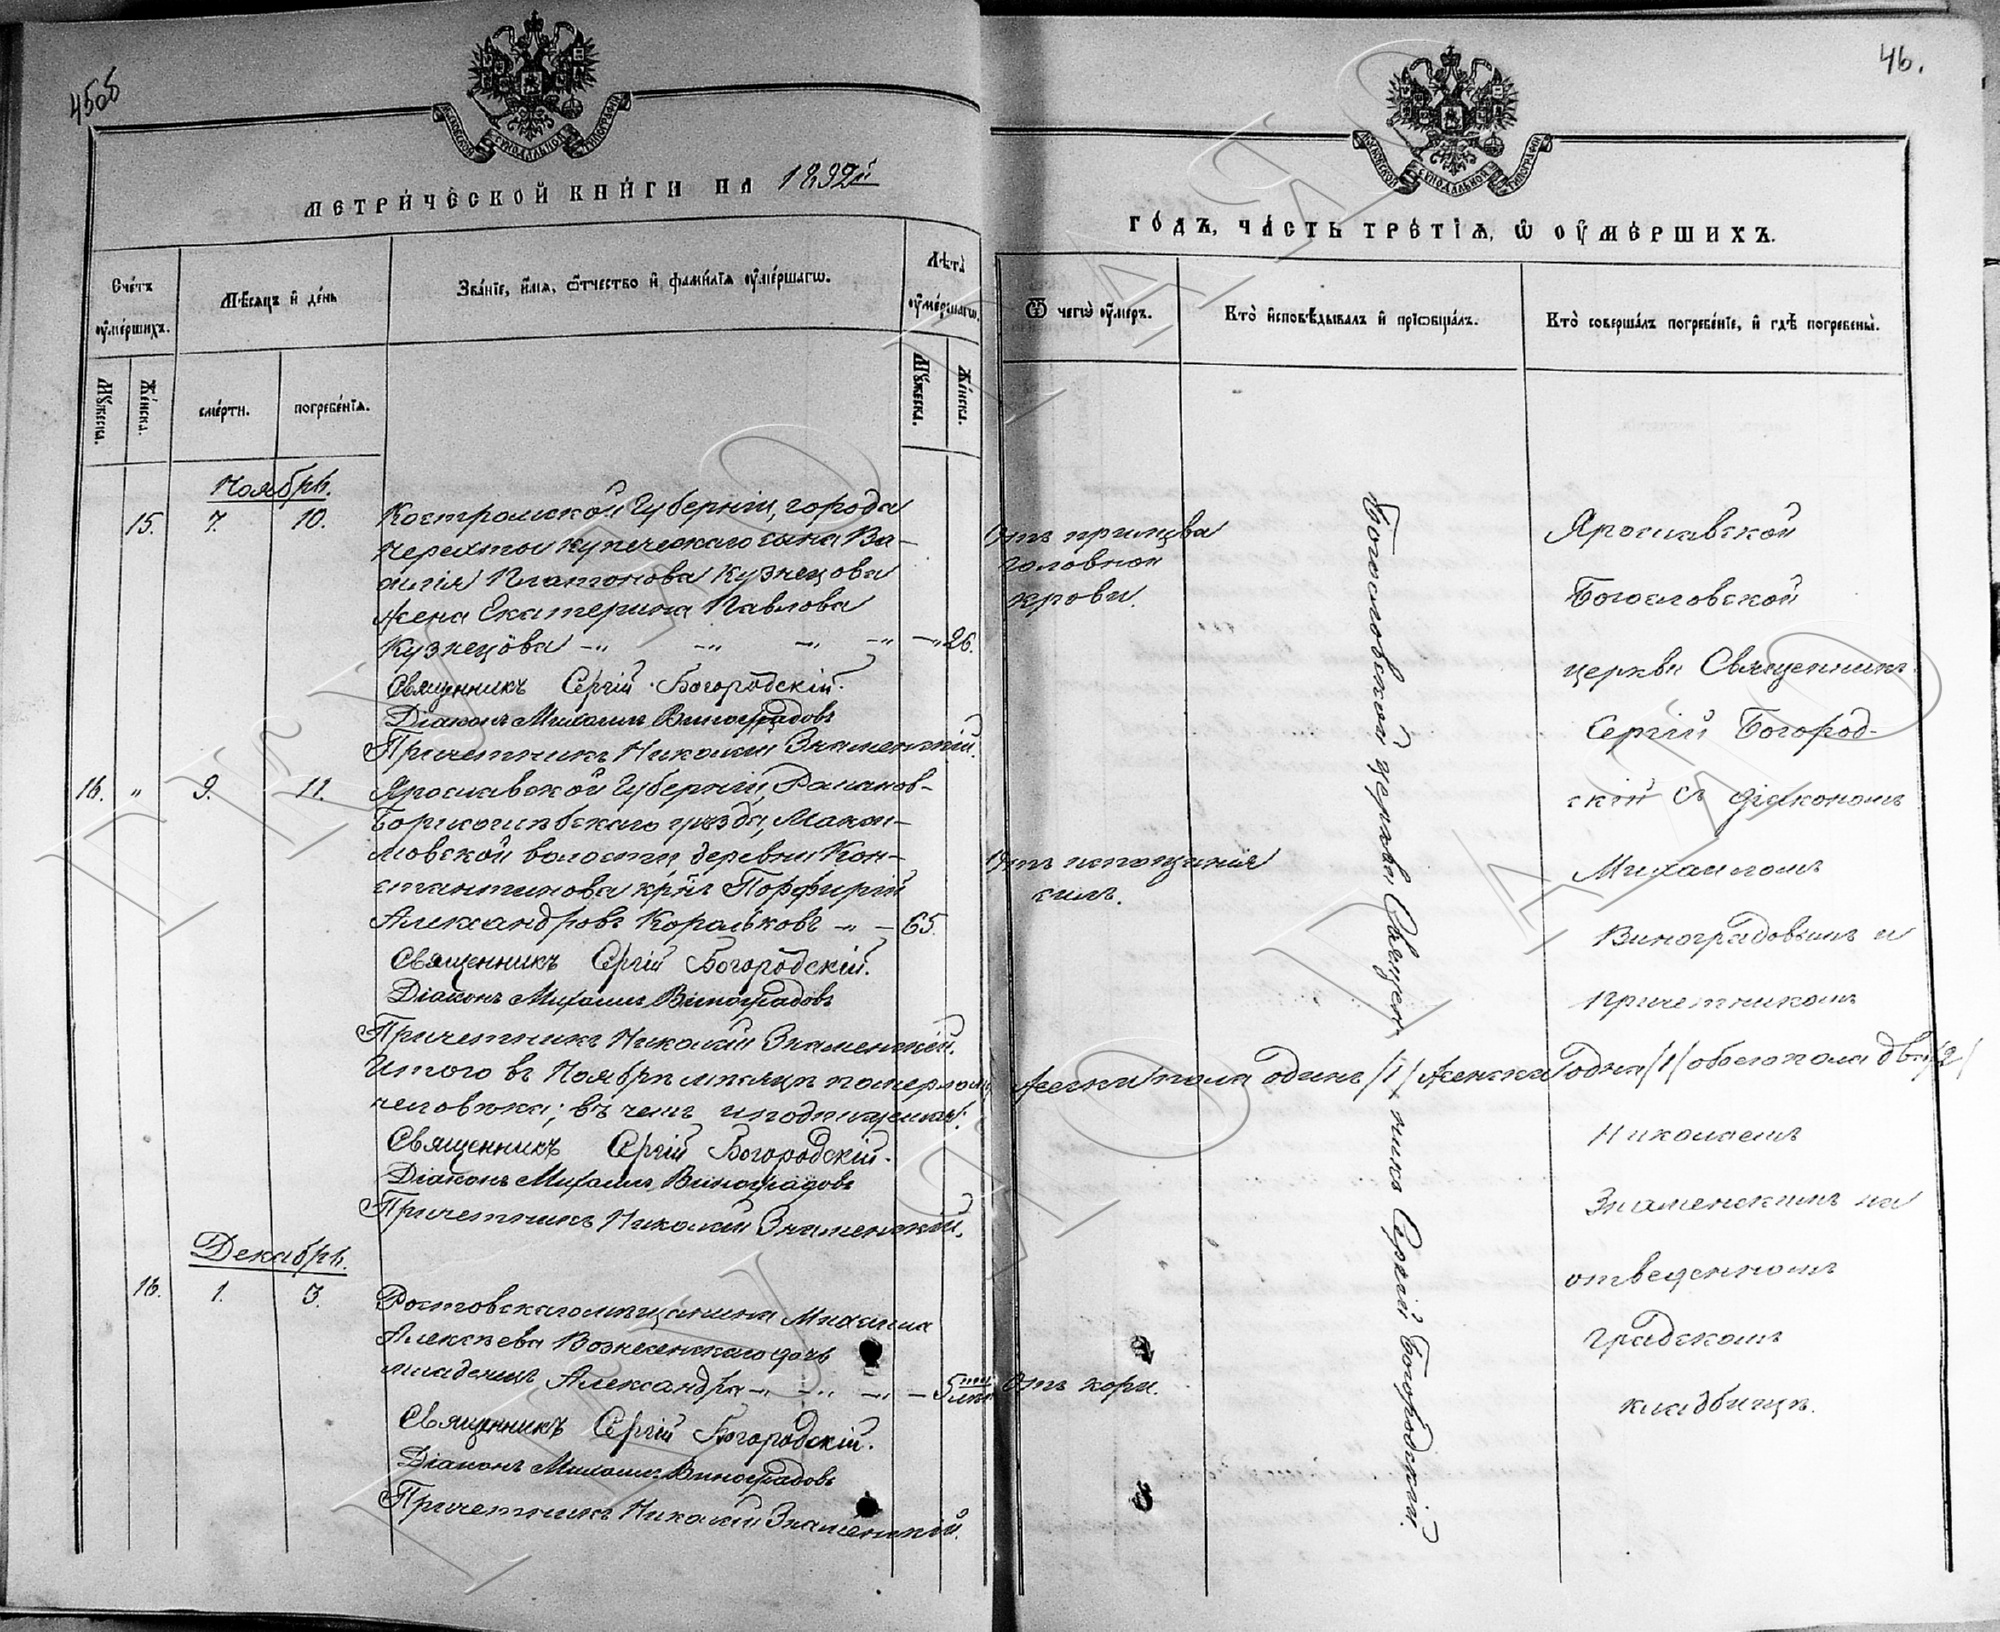 45об
МОСКОВСКОЙ СѴНОДАЛЬНОЙ ТИПОГРАФІИ
МЕТРИ́ЧЕСКОЙ КНИ́ГИ НА 1892й
Счетъ оумершихъ.
Мѣсяцъ и день
Званіе, имя, ѿчество и фамилія оумершагѡ.
Лѣта оумершагѡ.
Мужеска.
Женска.
смерти.
погребенія.
Мужеска.
Женска.
Ноябрь.
15. 7. 10. Костромской Губерніи, города
Нерехты купеческаго сына Ва-
силія Платонова Кузнецова
жена Екатерина Павлова
Кузнецова -„ -„ -„ -„ -„ 26.
Священникъ Сергій Богородскій.
Діаконъ Михаилъ Виноградовъ
Причетникъ Николай Знаменскій.
16. „ 9. 11. Ярославской Губерніи, Романов-
Борисоглѣбскаго уѣзда,
волости, деревни Кон-
стантинова крнъ Порфирій
Александровъ Корольковъ -„ - 65.
Священникъ Сергій Богородскій.
Діаконъ Михаилъ Виноградовъ
Причетникъ Николай Знаменскій.
Итого въ Ноябрѣ мѣсяцѣ померло
человѣка; въ чемъ и подписуемся:
Священникъ Сергій Богородскій.
Діаконъ Михаилъ Виноградовъ
Причетникъ Николай Знаменскій.
Декабрь.
16. 1. 3. Ростовскаго мѣщанина Михаила
Алексѣева Вознесенскаго дочь
младенецъ Александра -„ -„ -„ - 5
Священникъ Сергій Богородскій.
Діаконъ Михаилъ Виноградовъ
Причетникъ Николай Знаменскій.
46.
МОСКОВСКОЙ СѴНОДАЛЬНОЙ ТИПОГРАФІИ
ГОДЪ, ЧАСТЬ ТРЕТІЯ, Ѡ ОУМЕРШИХЪ.
Ѿ чегѡ оумеръ.
Кто исповѣдывалъ и пріѡбщалъ.
Кто совершалъ погребеніе, и гдѣ погребены.
Отъ прилива
головной
крови.
Отъ истощенія
силъ.
мужска пола одинъ /1/ женска одна /1/ обоего пола два /2/
Отъ кори.
Богословской церкви Священникъ Сергій Богородскій.
Ярославской
Богословской
церкви Священникъ
Сергій Богород-
скій съ діакономъ
Михаиломъ
Виноградовымъ и
причетникомъ
Николаемъ
Знаменскимъ на
отведенномъ
градскомъ
кладбищѣ.